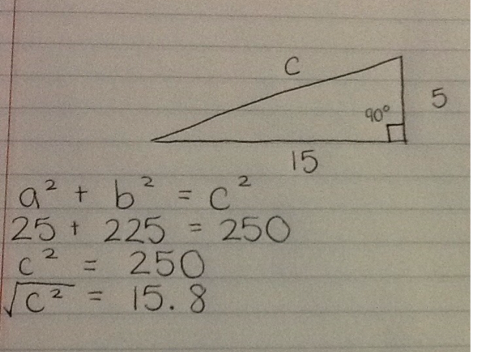 c
5
90°
15
a² + b² = c²
25 + 225 = 250
c² = 250
√c² = 15.8